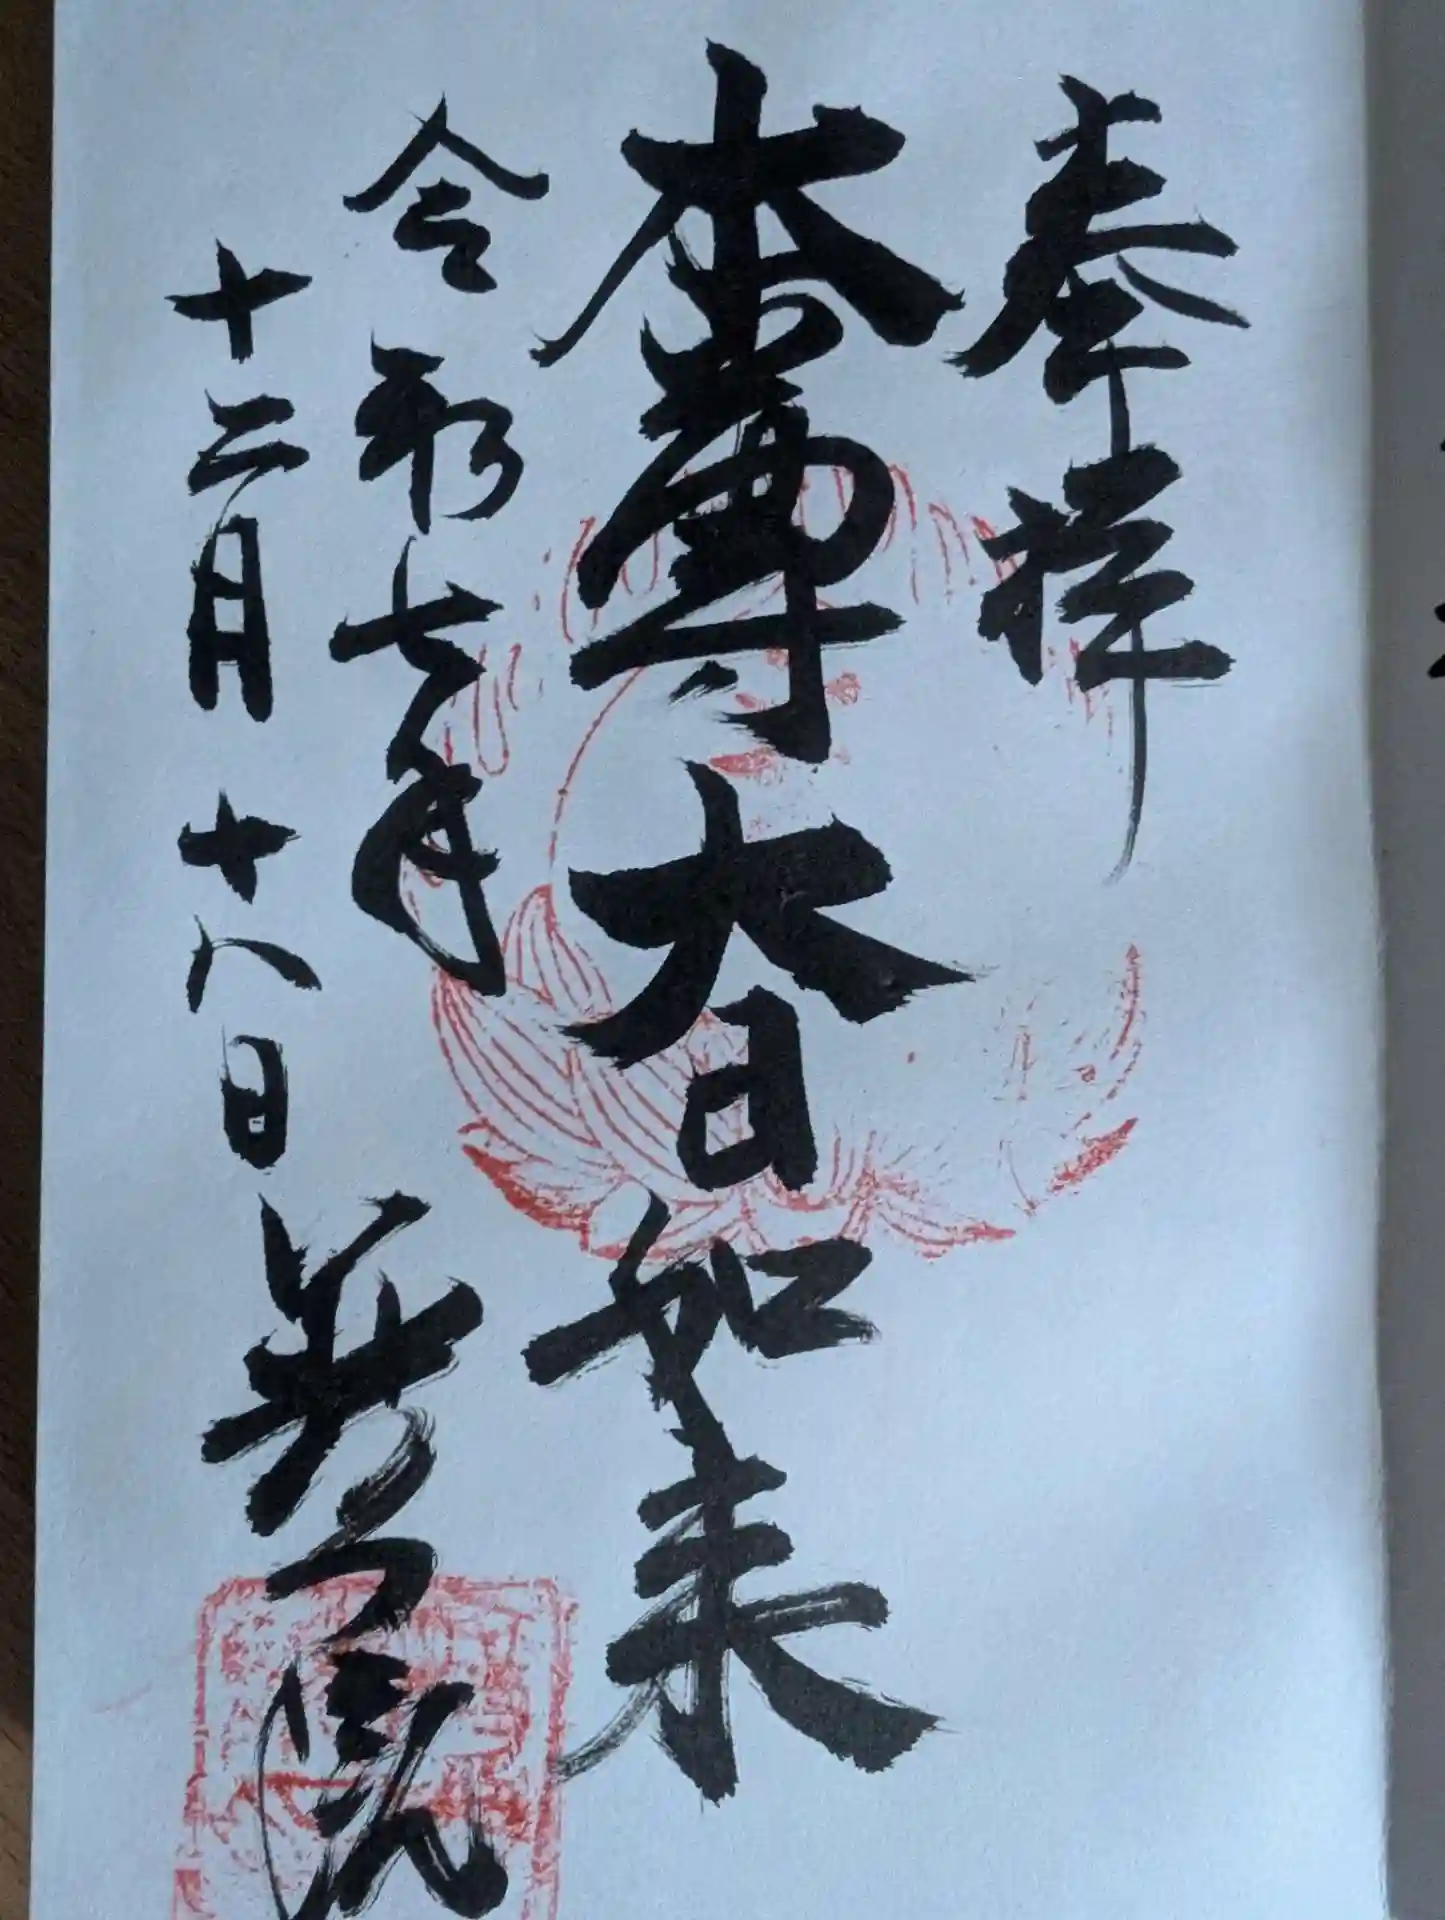 奉拝
本尊大日如来
令和七年
十二月十八日
普門院